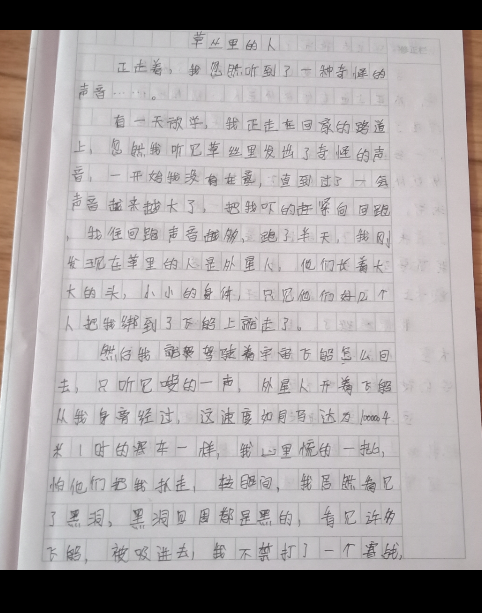 草丛里的人
正走着，我忽然听到了一种奇怪的
声音……。
有一天放学，我正走在回家的路道
上，忽然我听见草丛里发出了奇怪的声
音，一开始我没有在意，直到过了一会
声音越来越大了，把我吓的赶紧向回跑
，我往回跑声音越响，跑了半天，我刚
发现在草里的人是外星人，他们长着大
大的头，小小的身体，只见他们好几个
人把我绑到了飞船上就走了。
然后我驾驶着宇宙飞船怎么回
去，只听见嗖的一声，外星人开着飞船
从我身旁经过，这速度如同马达为100004
米1时的赛车一样，我心里慌的一批，
怕他们把我抓走，转眼间，我居然看见
了黑洞，黑洞四周都是黑的，看见许多
飞船，被吸进去，我不禁打了一个寒战，